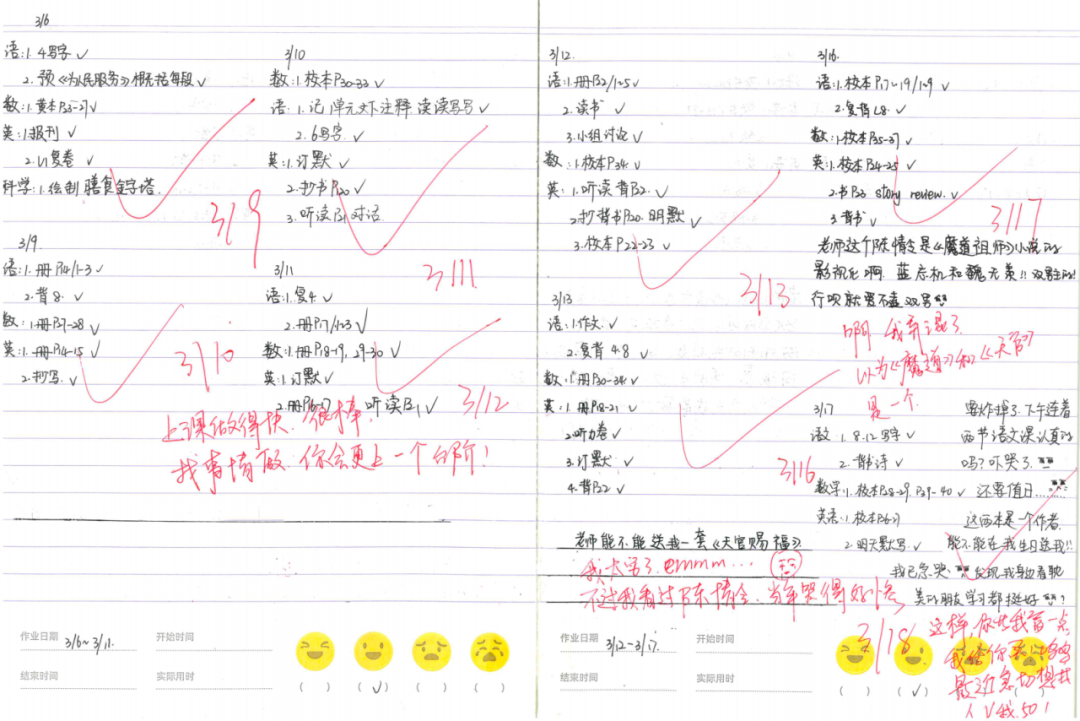 3/6
语:1.4写字 ✓
2.预《为人民服务》概括每段 ✓
数:1.黄本P25-27 ✓
英:1.报刊 ✓
2.U1复卷 ✓
科学:1.绘制膳食金字塔.
3/9
3/9.
语:1.册P14/1-3 ✓
2.背8. ✓
数:1.册P27-28 ✓
英:1.册P14-15 ✓
2.抄写. ✓
3/10
3/10
数:1.校本P30-33 ✓
语:1.记1单元课下注释 读读写写 ✓
2.6写字 ✓
英:1.订默 ✓
2.抄书P20 ✓
3.听读P21对话.
3/11
3/11
语:1.复4. ✓
2.册P17/1-23 ✓
数:1.册P18-19, 29-30 ✓
英:1.订默 ✓
2.册P16-17 听读P21 ✓
3/12
上课做得快.很棒.
找事情做.你会更上一个台阶!
作业日期 3/6~3/11.
开始时间
结束时间
实际用时
( ) (✓) ( ) ( )
3/12.
语:1.册P22/1-25 ✓
2.读书 ✓
3.小组讨论 ✓
数:1.校本P34. ✓
英:1.听读背P22. ✓
2.抄背书P20.明默 ✓
3.校本P22-23 ✓
3/13
3/13
语:1.作文 ✓
2.复背 4.8 ✓
数:1.册P30-34. ✓
英:1.册P18-21. ✓
2.听力卷 ✓
3.订默 ✓
4.背P22 ✓
3/16
老师能不能送我一套《天官赐福》
我太穷了.emmm...
不过我看过陈情令.当年哭得好惨
3/16.
语:1.校本P17~19/1-29 ✓
2.复背L8. ✓
数:1.校本P35-37 ✓
英:1.校本P24-25 ✓
2.书P23 story review. ✓
3.背书 ✓
3/17
老师这个陈情令是《魔道祖师》小说的
影视化啊. 蓝忘机和魏无羡!!双男主的!
啊 我弄混了.
以为《魔道》和《天官》
是一个.
3/17
语文 1.8.12.写字 ✓
2.背诗 ✓
数学:1.校本P28-29. P39-40 ✓
英语:1.校本P26-27
2.明天默写. ✓
要炸掉了.下午连着
两节语文课认真的
吗?吓哭了.
还要值日......
这两本是一个作者.
能不能在我生日送我!!
我已急哭. 发现我身边看耽
美的朋友学习都挺好 ?
3/18
这样,你
作业日期 3/12~3/17.
开始时间
结束时间
实际用时
( ) (✓) ( )